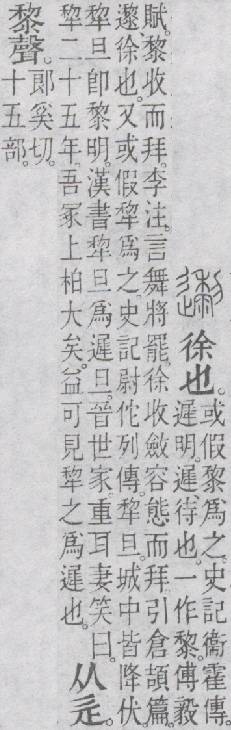 邌徐也。或假黎爲之。史記衞霍傳。
遲明。遲、待也。一作黎。傅毅
賦。黎收而拜。李注。言舞將罷。徐收斂容態而拜。引倉頡篇。
邌徐也。又或假犂爲之。史記尉佗列傳。犂旦城中皆降伏。
犂旦卽黎明。漢書犂旦爲遲旦。晉世家。重耳妻笑曰。
犂二十五年。吾冢上柏大矣。益可見犂之爲遲也。
从辵。
黎聲。郎奚切。
十五部。